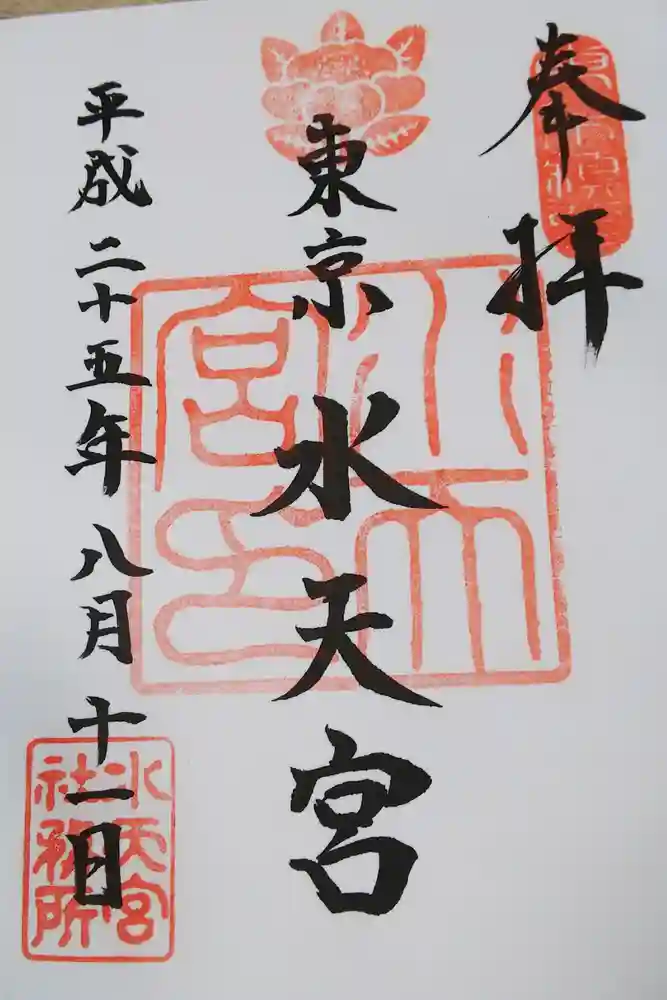 奉拝
東京水天宮
平成二十五年八月十一日
水天宮印
水天宮
社務所